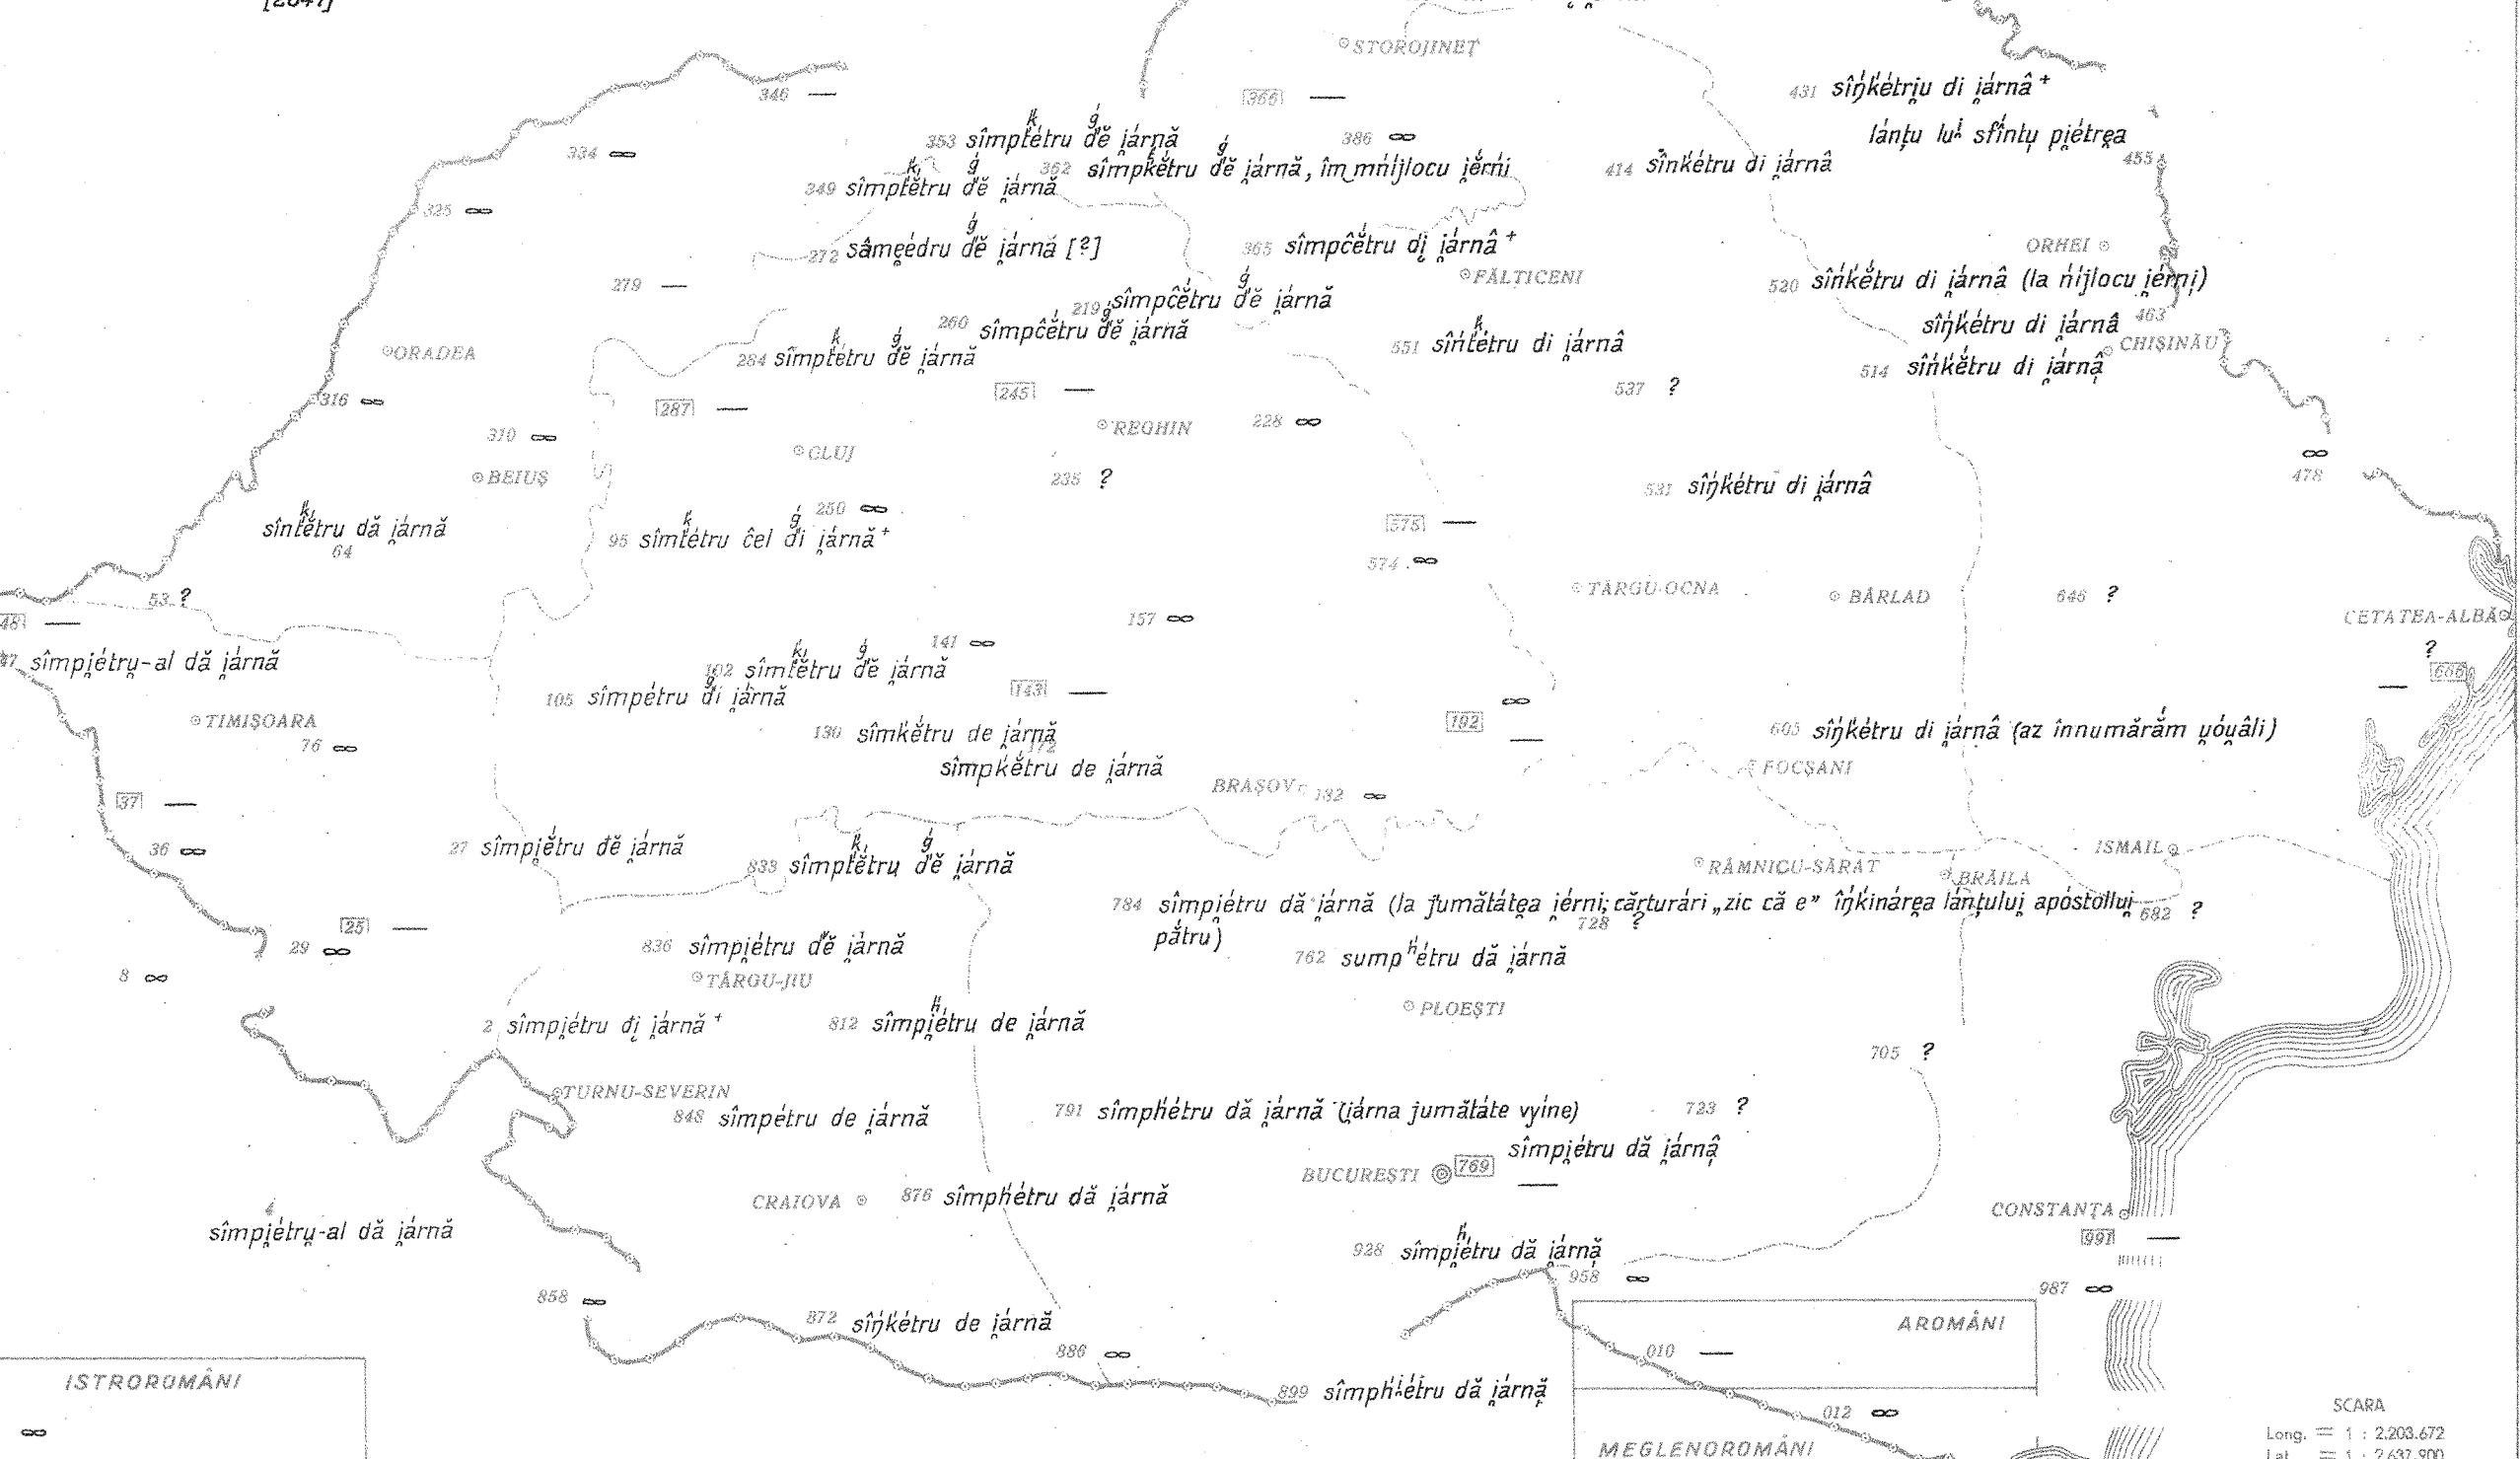 [2847]
STOROJINEȚ
346 —
[366] —
431 sîŋḱétri̯u di i̯árnâ +
lánțu luĭ sfîntu̦ pi̯étre̯a
353 sîmptétru dĕ i̯árnă
386 ∞
455
334 ∞
362 sîmpḱĕ́tru dĕ i̯árnă, îm mńíjlocu i̯ĕ́rńi
414 sînḱétru di i̯árnâ
349 sîmptĕ́tru dĕ i̯árnă
325 ∞
272 sâmeédru dĕ i̯árnă [?]
365 sîmpĉĕ́tru di̯ i̯árnâ +
ORHEI
FĂLTICENI
279 —
520 sîńḱĕ́tru di i̯árnâ (la ńíjlocu i̯érni̦)
219 sîmpĉĕ́tru dĕ i̯árnă
260 sîmpĉĕ́tru dĕ i̯árnă
sîŋḱétru di i̯árnâ 463
551 sîńtétru di i̯árnâ
CHIȘINĂU
ORADEA
284 sîmptétru dĕ i̯árnă
514 sîńḱĕ́tru di i̯árnâ̦
537 ?
[245] —
316 ∞
[287] —
228 ∞
REGHIN
310 ∞
CLUJ
∞
478
BEIUȘ
235 ?
531 sîŋḱétru di i̯árnâ
250 ∞
sîntĕ́tru dă i̯árnă
64
95 sîmtétru ĉel di i̯árnă +
[575] —
574 ∞
TÂRGU-OCNA
BÂRLAD
646 ?
53 ?
CETATEA-ALBĂ
48 —
157 ∞
141 ∞
?
47 sîmpi̯étru̯-al dă i̯árnă
102 sîmtĕ́tru dĕ i̯árnă
[606]
—
105 sîmpétru di i̯árnă
[143] —
∞
[192]
—
TIMIȘOARA
76 ∞
130 sîmḱĕ́tru de i̯árnă
605 sîŋḱétru di i̯árnâ (az înnumărắm u̯óu̯âli)
172
sîmpḱĕ́tru de i̯árnă
FOCȘANI
BRAȘOV
182 ∞
[37] —
36 ∞
27 sîmpi̯ĕ́tru đĕ i̯árnă
833 sîmptétru̦ dĕ i̯árnă
ISMAIL
RÂMNICU-SĂRAT
BRĂILA
784 sîmpi̯étru dă i̯árnă (la jumătáte̯a i̯érni; cărturári „zic că e” îŋḱináre̯a lánțului̯ apóstollui̯
pắtru)
728 ?
682 ?
[25] —
29 ∞
836 sîmpi̯étru dĕ i̯árnă
762 sumpʰétru dă i̯árnă
8 ∞
TÂRGU-JIU
PLOEȘTI
2 sîmpi̯étru đi̯ i̯árnă +
812 sîmpi̯étru de i̯árnă
705 ?
TURNU-SEVERIN
848 sîmpétru de i̯árnă
791 sîmphétru dă i̯árnă (i̯árna jumătáte vyíne)
723 ?
sîmpi̯étru dă i̯árnâ̦
BUCUREȘTI [769]
—
CRAIOVA
876 sîmphétru dă i̯árnă
4
sîmpi̯étru̯-al dă i̯árnă
CONSTANȚA
[991] —
928 sîmpi̯étru dă i̯árnă̦
958 ∞
987 ∞
858 ∞
872 sîŋḱétru de i̯árnă
AROMÂNI
886 ∞
010 —
ISTROROMÂNI
∞
899 sîmphiétru dă i̯árnă̦
012 ∞
SCARA
MEGLENOROMÂNI
Long. = 1 : 2.203.672
Lat. = 1 : 2.637.900